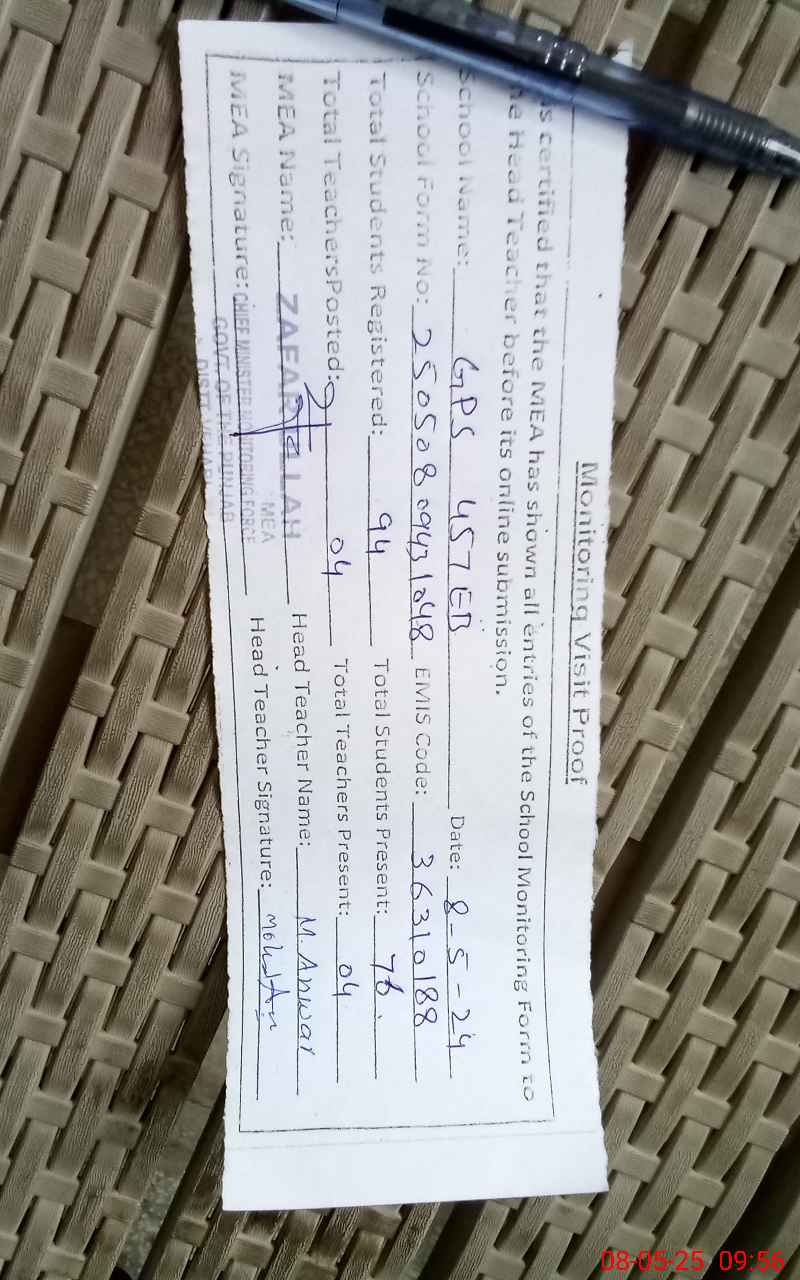 Monitoring Visit Proof
is certified that the MEA has shown all entries of the School Monitoring Form to
the Head Teacher before its online submission.
School Name: GPS 457 EB Date: 8-5-24
School Form No: EMIS Code: 36310188
Total Students Registered: 94 Total Students Present: 
Total TeachersPosted: 04 Total Teachers Present: 04
MEA Name: Head Teacher Name: M. Anwar
MEA
MEA Signature: Head Teacher Signature:
CHIEF MINISTER MONITORING FORCE
GOVT. OF THE PUNJAB
08-05-25 09:56